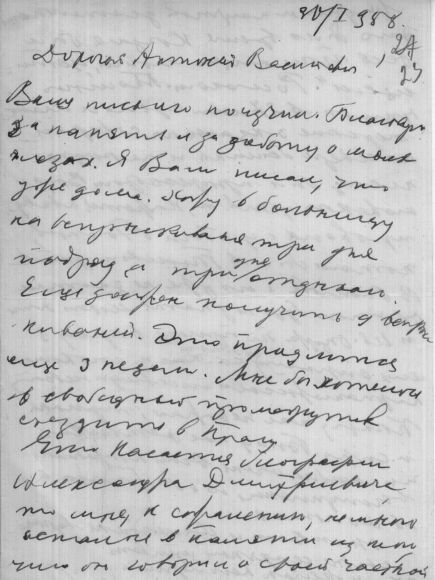 30/I 958.
24
23
Дорогой Антоний Васильевич,
Ваше письмо получил. Благодарю
за память и за заботу о моих
глазах. Я Вам писал, что
уже дома. Хожу в больницу
на впрыскивания три дня
подряд, а три дня отдыхаю.
Еще должен получить 9 впрыс-
киваний. Это продлится
еще 3 недели. Мне бы хотелось
в свободный промежуток
съездить в Прагу.
Что касается биографии
Александра Дмитриевича,
то мне, к сожалению, немного
осталось в памяти из того
что он говорил о своей частной